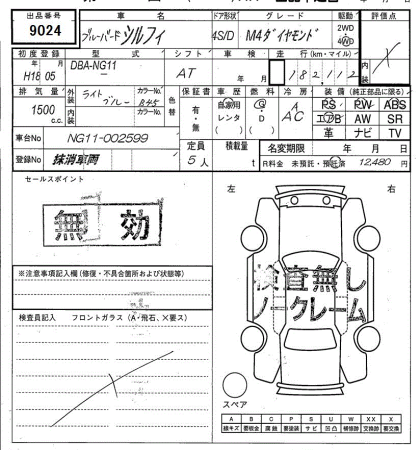 出品番号 車名 ドア形状 グレード 駆動 評価点
9024 ブルーバード シルフィ 4S/D M4ダイヤモンド 2WD 4WD
初度登録 型式 シフト 車検 走行(km・マイル) 内装
H18 年 05 月 DBA-NG11 AT 年 月 182,112
排気量 外装 カラーNo. 色替 保証書 車歴 燃料 冷房 装備(純正部品に限る)
1500 c.c. ライトブルー B45 有・無 自家用 レンタ G・D AC PS PW ABS
エアB AW SR
内装 カラーNo. 革 ナビ TV
車台No NG11-002599
定員 5人 積載量 t 名変期限 年 月 日
登録No 抹消車両 R料金 未預託・預託済 12,480円
セールスポイント
無効
左 右
※注意事項記入欄(修復・不具合箇所および状態等)
検査無し
ノークレーム
検査員記入 フロントガラス(A・飛石、X要ス)
スペア
A B C P S U W X XX
線キズ 要板金 腐蝕 要塗装 サビ 凹凸 補修跡 交換跡 要交換